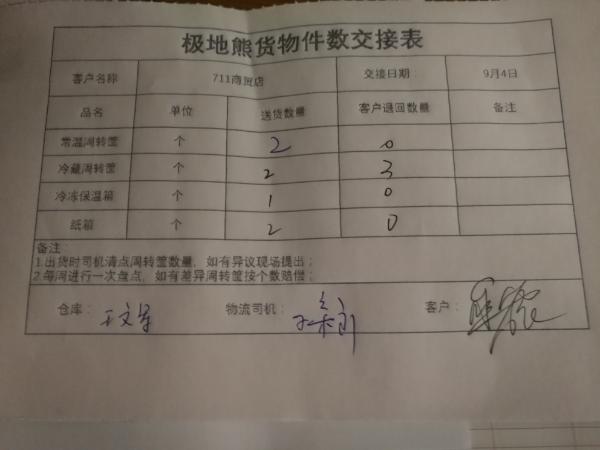 极地熊货物件数交接表
客户名称 711商贸店 交接日期: 9月4日
品名 单位 送货数量 客户退回数量 备注
常温周转筐 个 2 0
冷藏周转筐 个 2 3
冷冻保温箱 个 1 0
纸箱 个 2 0
备注:
1.出货时司机清点周转筐数量,如有异议现场提出;
2.每周进行一次盘点,如有差异周转筐按个数赔偿;
仓库: 物流司机: 客户: